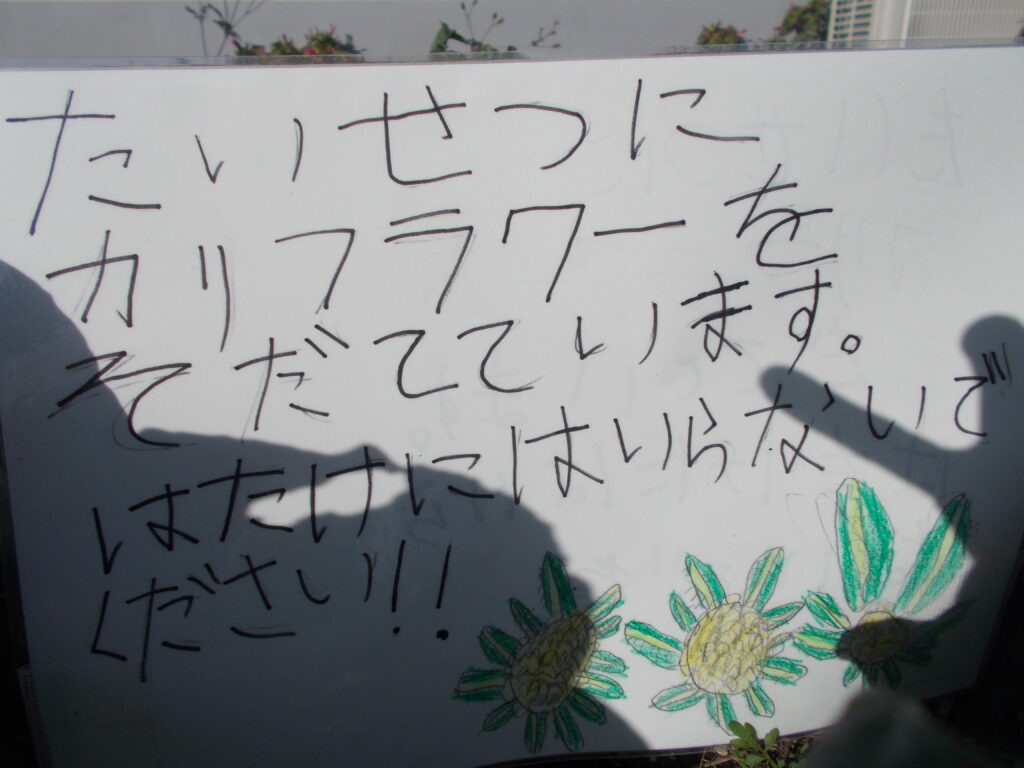 たいせつに
カリフラワーを
そだてています。
はたけにはいらないで
ください!!